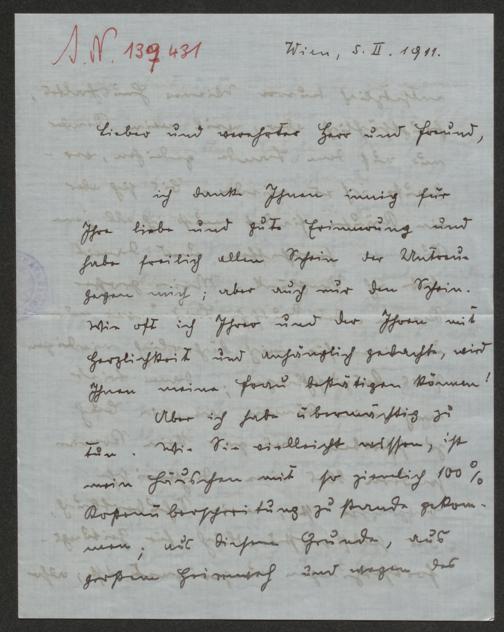 I. N. 139431
Wien, 5. II. 1911.
Lieber und verehrter Herr und Freund,
ich danke Ihnen innig für
Ihre liebe und gute Erinnerung und
habe freilich allen Schein der Untreue
gegen mich; aber auch nur den Schein.
Wie oft ich Ihrer und der Ihren mit
Herzlichkeit und anhänglich gedachte, wird
Ihnen meine Frau bestätigen können!
Aber ich habe übermächtig zu
tun. Wie Sie vielleicht wissen, ist
mein Häuschen mit so ziemlich 100%
Kostenüberschreitung zu stande gekom-
men; aus diesem Grunde, aus
großem Heimweh und wegen des